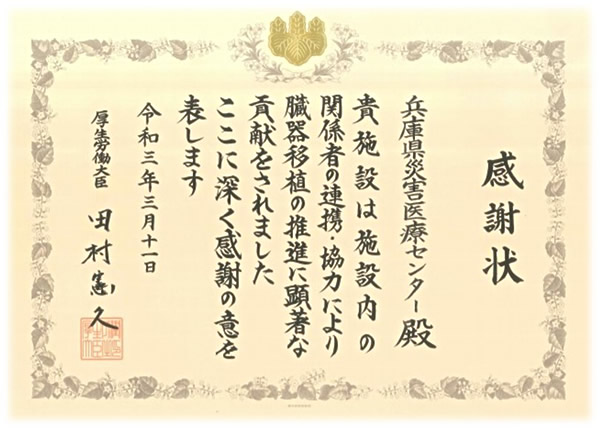 感謝状
兵庫県災害医療センター殿
貴施設は施設内の
関係者の連携・協力により
臓器移植の推進に顕著な
貢献をされました
ここに深く感謝の意を
表します
令和三年三月十一日
厚生労働大臣 田村憲久